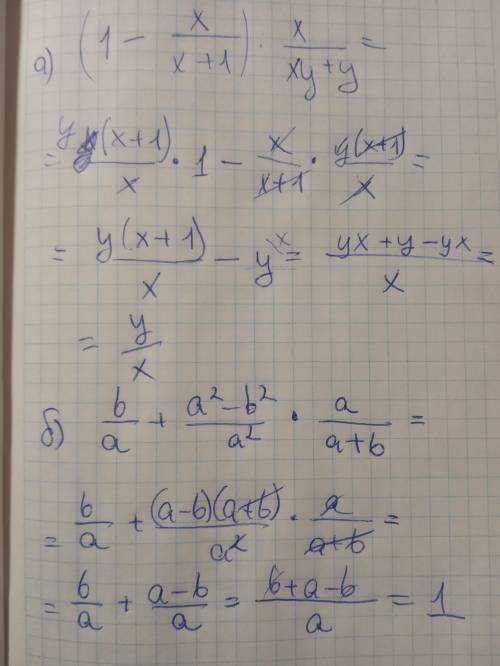 а) (1 - x/(x+1)) · x/(xy+y) =
= y(x+1)/x · 1 - x/(x+1) · y(x+1)/x =
= y(x+1)/x - y^x = (yx+y-yx)/x =
= y/x
б) b/a + (a²-b²)/a² · a/(a+b) =
= b/a + (a-b)(a+b)/a² · a/(a+b) =
= b/a + (a-b)/a = (b+a-b)/a = 1